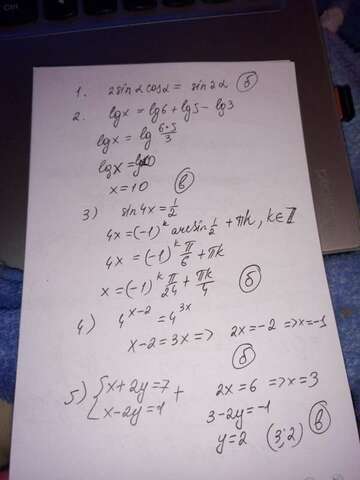 1. 2sin α cos α = sin 2α б
2. lg x = lg 6 + lg 5 - lg 3
lg x = lg 6·5/3
lg x = lg 10
x = 10 в
3) sin 4x = 1/2
4x = (-1)^k arcsin 1/2 + πk, k ∈ Z
4x = (-1)^k π/6 + πk
x = (-1)^k π/24 + πk/4 б
4) 4^(x-2) = 4^(3x)
x - 2 = 3x => 2x = -2 => x = -1
б
5) { x + 2y = 7 + 2x = 6 => x = 3
x - 2y = 1 3 - 2y = -1
y = 2 (3; 2) в